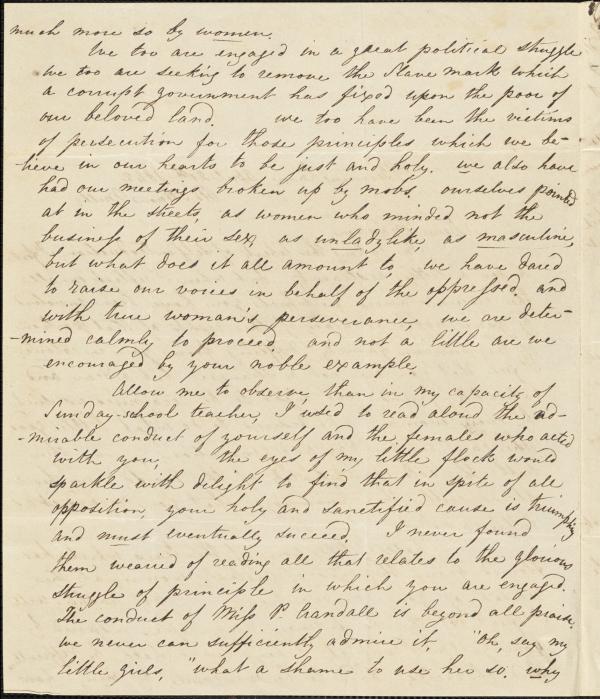 much more so by women.
We too are engaged in a great political struggle
we too are seeking to remove the Slave mark which
a corrupt government has fixed upon the poor of
our beloved land. we too have been the victims
of persecution for those principles which we be-
-lieve in our hearts to be just and holy. we also have
had our meetings broken up by mobs, ourselves pointed
at in the streets, as women who minded not the
business of their sex, as unladylike, as masculine,
but what does it all amount to, we have dared
to raise our voices in behalf of the oppressed, and
with true woman's perseverance, we are deter-
-mined calmly to proceed and not a little are we
encouraged by your noble example.
Allow me to observe, than in my capacity of
Sunday-school teacher, I used to read aloud the ad-
-mirable conduct of yourself and the females who acted
with you, the eyes of my little flock would
sparkle with delight to find that in spite of all
opposition, your holy and sanctified cause is triumphing
and must eventually succeed. I never found
them wearied of reading all that relates to the glorious
struggle of principle in which you are engaged.
The conduct of Miss P. Crandall is beyond all praise,
we never can sufficiently admire it, "Oh, say my
little girls, "what a shame to use her so, why